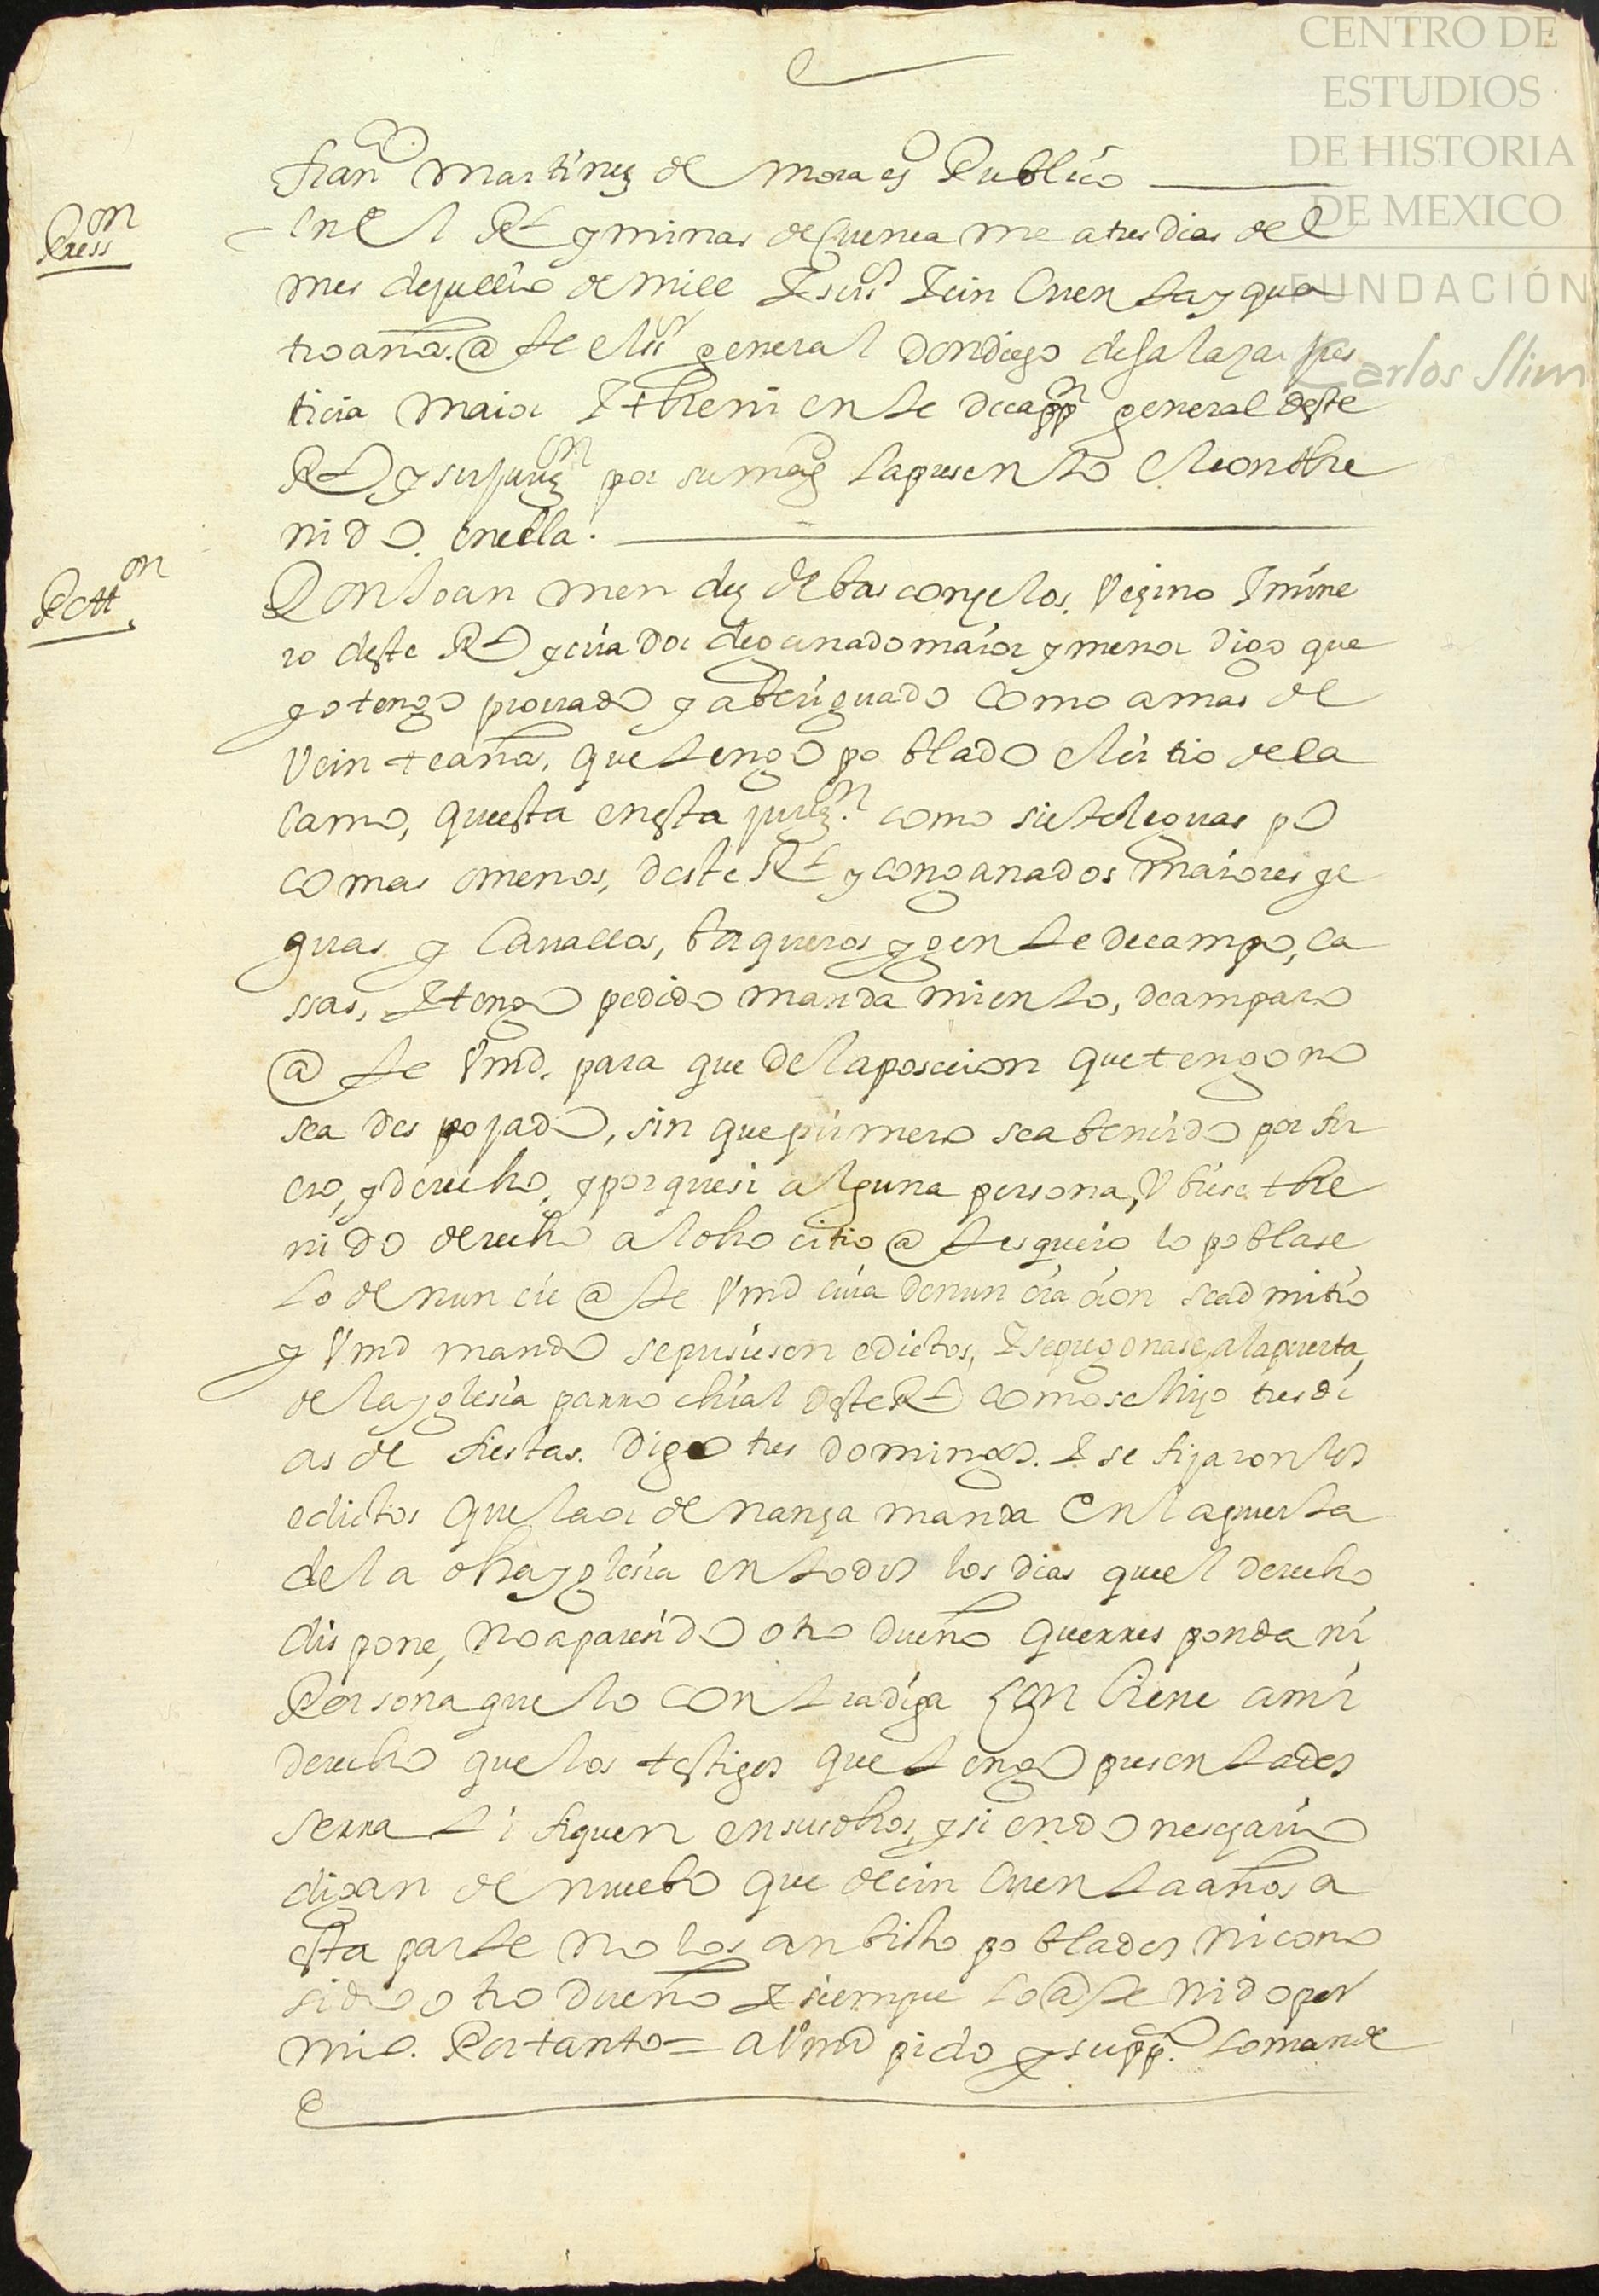 CENTRO DE
ESTUDIOS
DE HISTORIA
DE MEXICO
FUNDACIÓN
Carlos Slim
franco martinez de mora es Publico
Presson
en el Rl y minas de Cuenca me a tres dias del
mes de jullio de mill y seisos y cin cuen ta y qua
tro años. @ te el sr general don diego de salazar jus
ticia maior y theni en te de cappn general deste
Rl y su jurizn por su magd la presen to el con the
nido en ella.
Pettn
Don Joan men dez de bas conzelos, Vezino y mine
ro deste Rl y cria dor de ganado maior y menor digo que
yo tengo prouado y aberiguado como a mas de
Vein te años, que tengo po blado el sitio de la
camo, que esta en esta jurizn. como siete leguas po
co mas o menos, deste Rl y con ganados maiores ye
guas y Cauallos, baqueros y gen te de campo, ca
ssas, y tengo pedido manda mien to, de amparo
@ te Vmd. para que de la poscecion que tengo no
sea des pojado, sin que primero sea bencido por fu
ero, y derecho, y por que si alguna persona, Vbiese the
ni do derecho al dho citio @ tes quero lo poblase
lo denun cie @ te Vmd cuia denun cia cion se ad mitio
y Vmd mando se pusiesen edictos, y se pregonase, a la puerta,
de la yglesia parro chial deste Rl como se hizo tres di
as de fiestas. digo tres domingos. y se fijaron los
edictos que la or de nanza manda en la puerta
de la dha yglesia en todos los dias que el derecho
dis pone, no a paresido otro dueño que rres ponda ni
Persona que lo con tradiga con biene a mi
derecho que los testigos que tengo presen tados
se rra ti fiquen en sus dhos, y si en do nesesario
digan de nuebo que de cin cuen ta años a
esta par te no los an bisto po blados ni cono
sido otro dueño y siempre lo @ te nido por
mio. Por tanto = a Vmd pido y supp.co lo mande